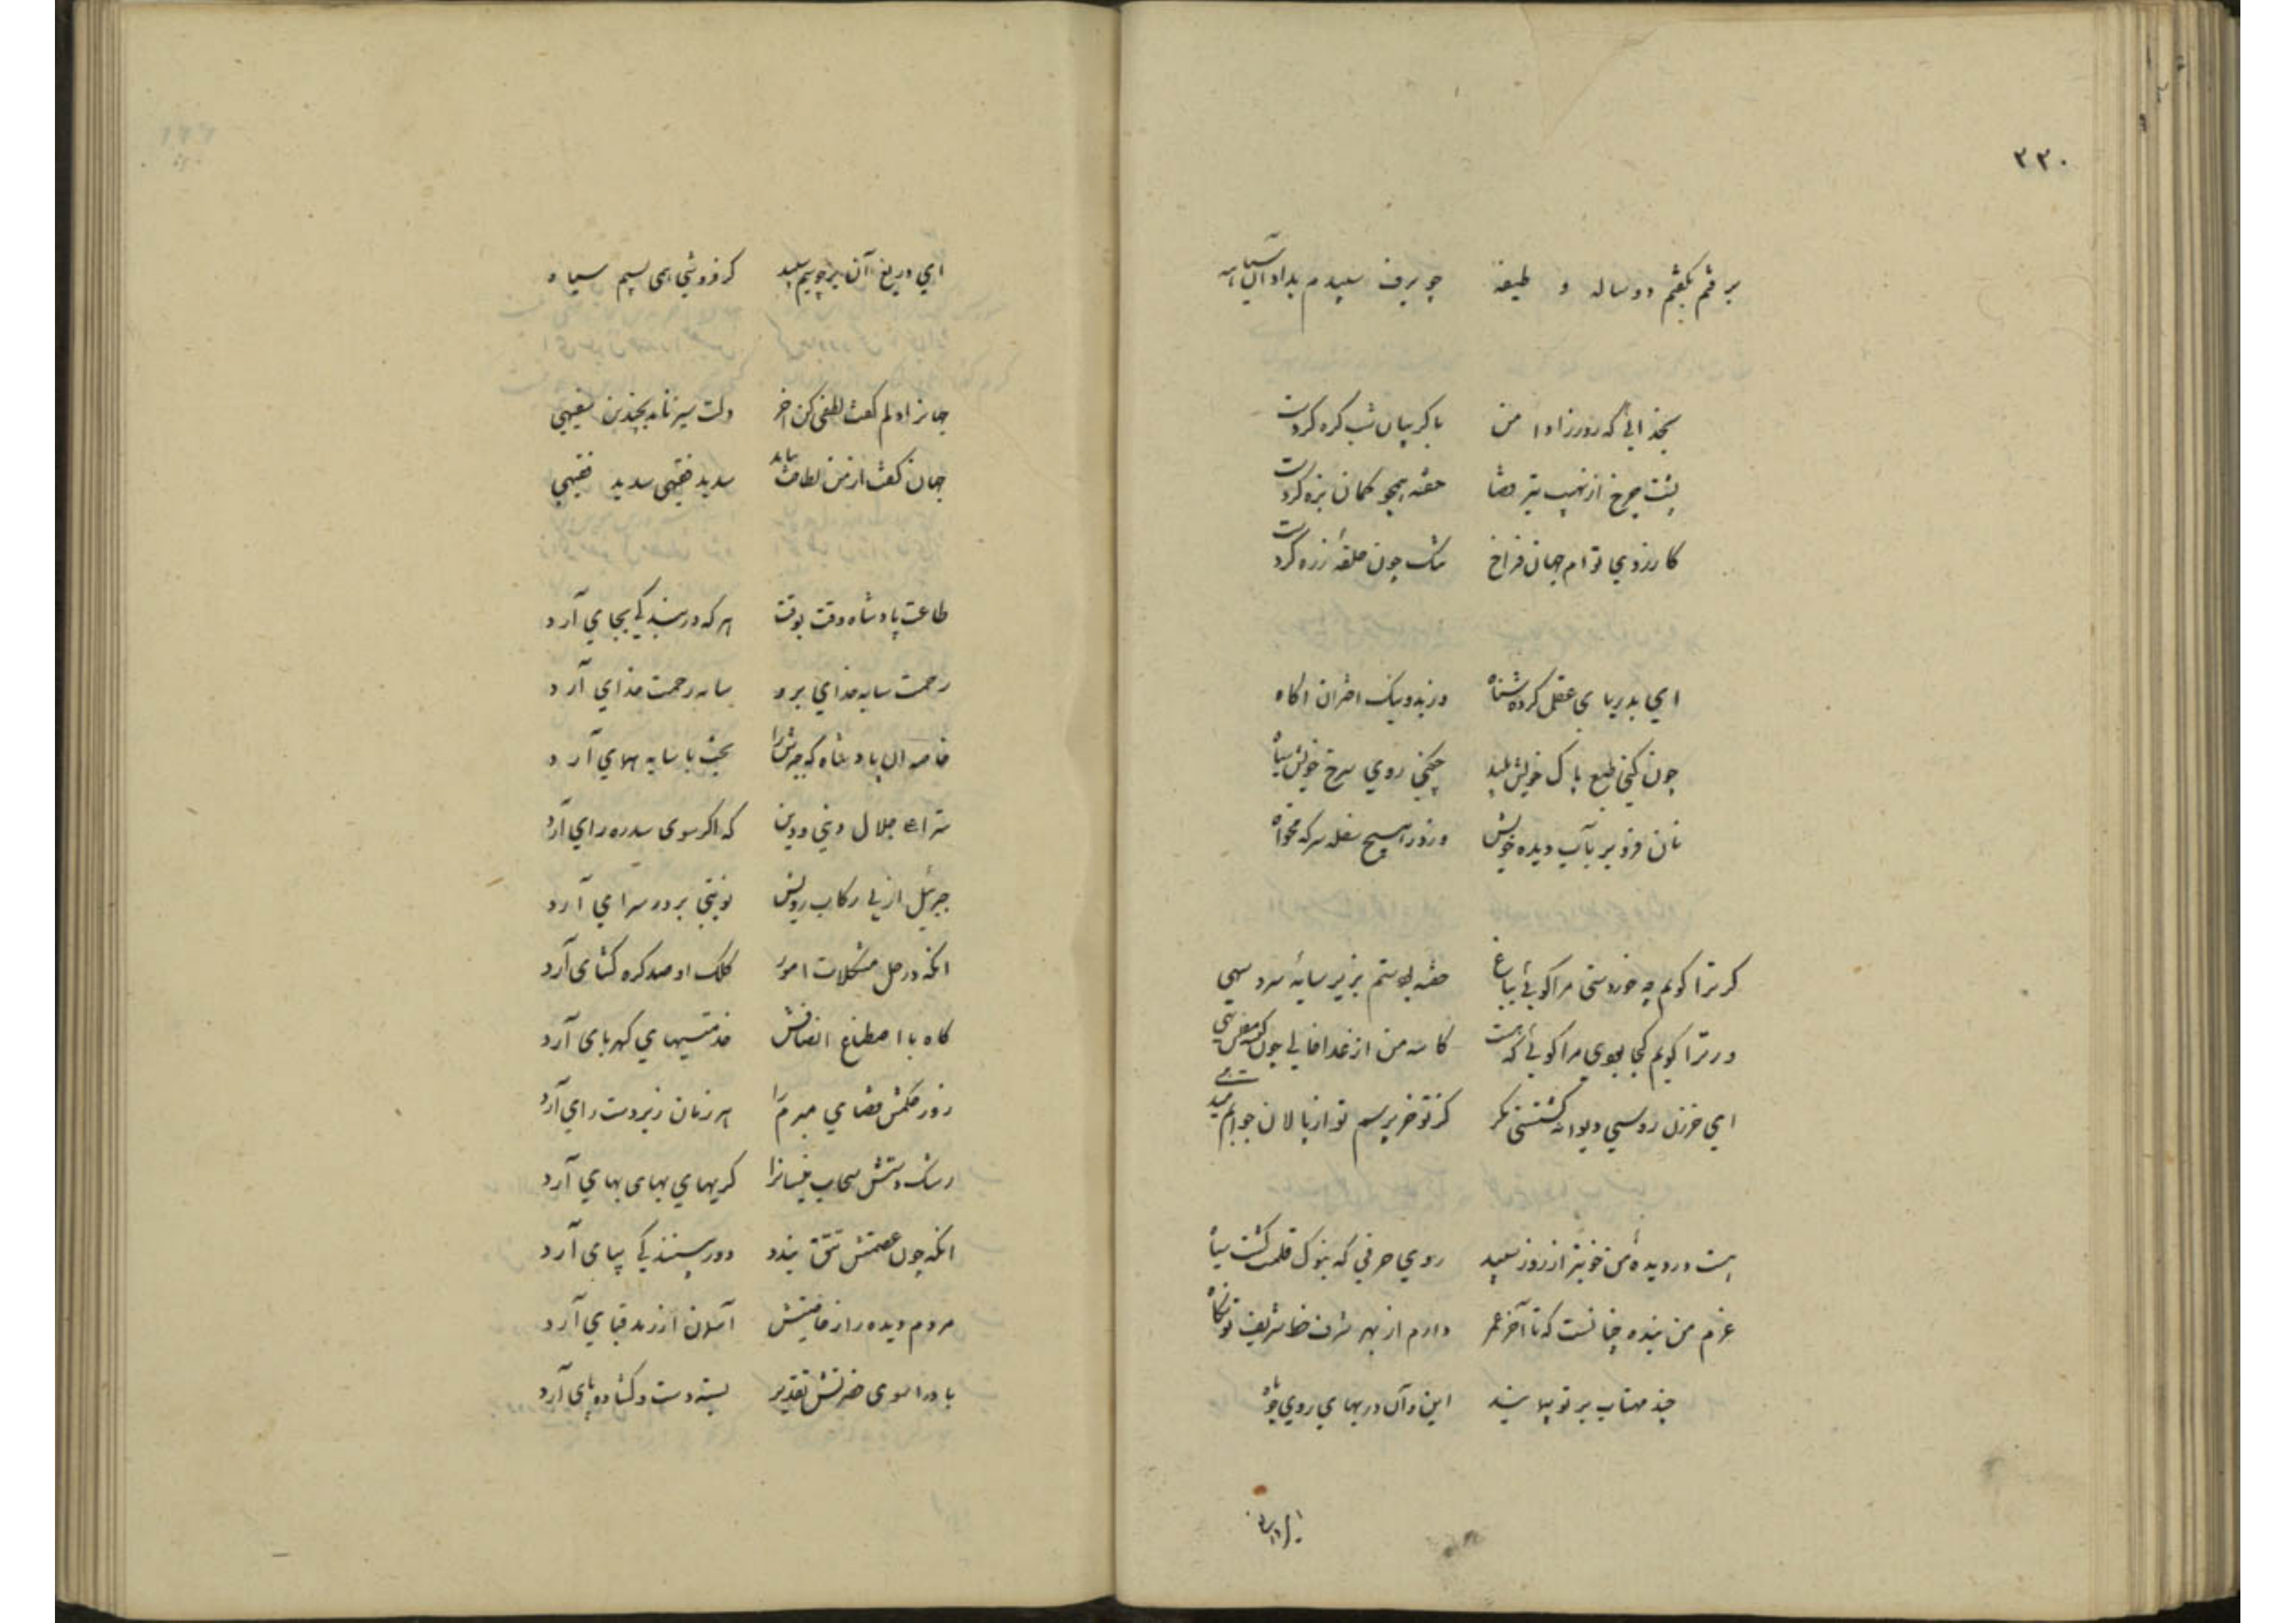 ۳۳۰
برفتم بگفتم دو ساله و طیفه چو برف سپیدم بداد آن سیاسیه
بخدائی که روز زاد از من با گریبان شب گره کردست
پشت چرخ از نهیب تیر قضا خفته همچو کمان بزه کردست
کارزوی توام جهان فراخ تنک چون حلقهٔ زره کردست
ای بدریای عقل کرده شناه وز بد و نیک اختران آکاه
چون کنی طبع پاک خویش پلید چکنی روی سرخ خویش سیاه
نان فرو بر بآب دیده خویش وز در هیچ سفله سرکه مخواه
کر ترا کویم چه خوردستی مرا کوئی بباغ خفته بودستم بزیر سایهٔ سرو سهی
ور ترا کویم کجا بودی مرا کوئی که هست کاسه من از غذا خالی چو کیسه مفلسی
ای خر زن روسپی دیوانه کشتستی مکر کز تو خر پرسم تو از پالان جوابم میدهی
هست در دیدهٔ من خوبتر از روز سپید روی حرفی که بنوک قلمت کشت سیاه
عزم من بنده چنانست که تا آخر عمر دارم از بهر شرف خط شریف تو نکاه
چند مهتاب بر تو پیماید این و آن در بهای روی چو ماه
ای دریغ
ای دریغ آن بر چو سیم سپید که فروشی همی بسیم سیاه
جهانرا دلم کفت لطفی کن آخر دلت سیر نامد بچندین سفیهی
جهان کفت از من لطافت نیاید سدید فقیهی سدید فقیهی
طاعت پادشاه وقت بوقت هر که در بندکی بجای آرد
رحمت سایه خدای برو سایه رحمت خدای آرد
خاصه آن پادشاه که چترش را بخت با سایه همای آرد
ستر اعلی جلال دنیی و دین که اکر سوی سدره رای آرد
جبرئیل از پی رکاب رویش نوبتی بر در سرای آرد
انکه در حل مشکلات امور کلک او صد کره کشای آرد
کاه با اصطناع انصافش خدمتیهای کهربای آرد
روز حکمش قضای مبرم را هر زمان زیر دست رای آرد
رشک دستش سحاب نیسانرا کریهای بهای بهای آرد
انکه چون عصمتش تتق بندد دور بینندکی بپای آرد
مردم دیده را ز خاصیتش آسمان از زمد قبای آرد
باد را سوی حضرتش تقدیر بسته دست و کشاده پای آرد